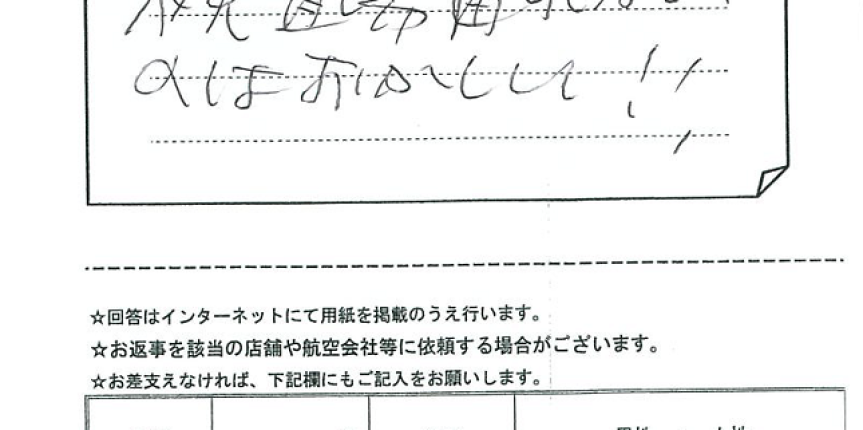 のはおかしい!!
☆回答はインターネットにて用紙を掲載のうえ行います。
☆お返事を該当の店舗や航空会社等に依頼する場合がございます。
☆お差支えなければ、下記欄にもご記入をお願いします。